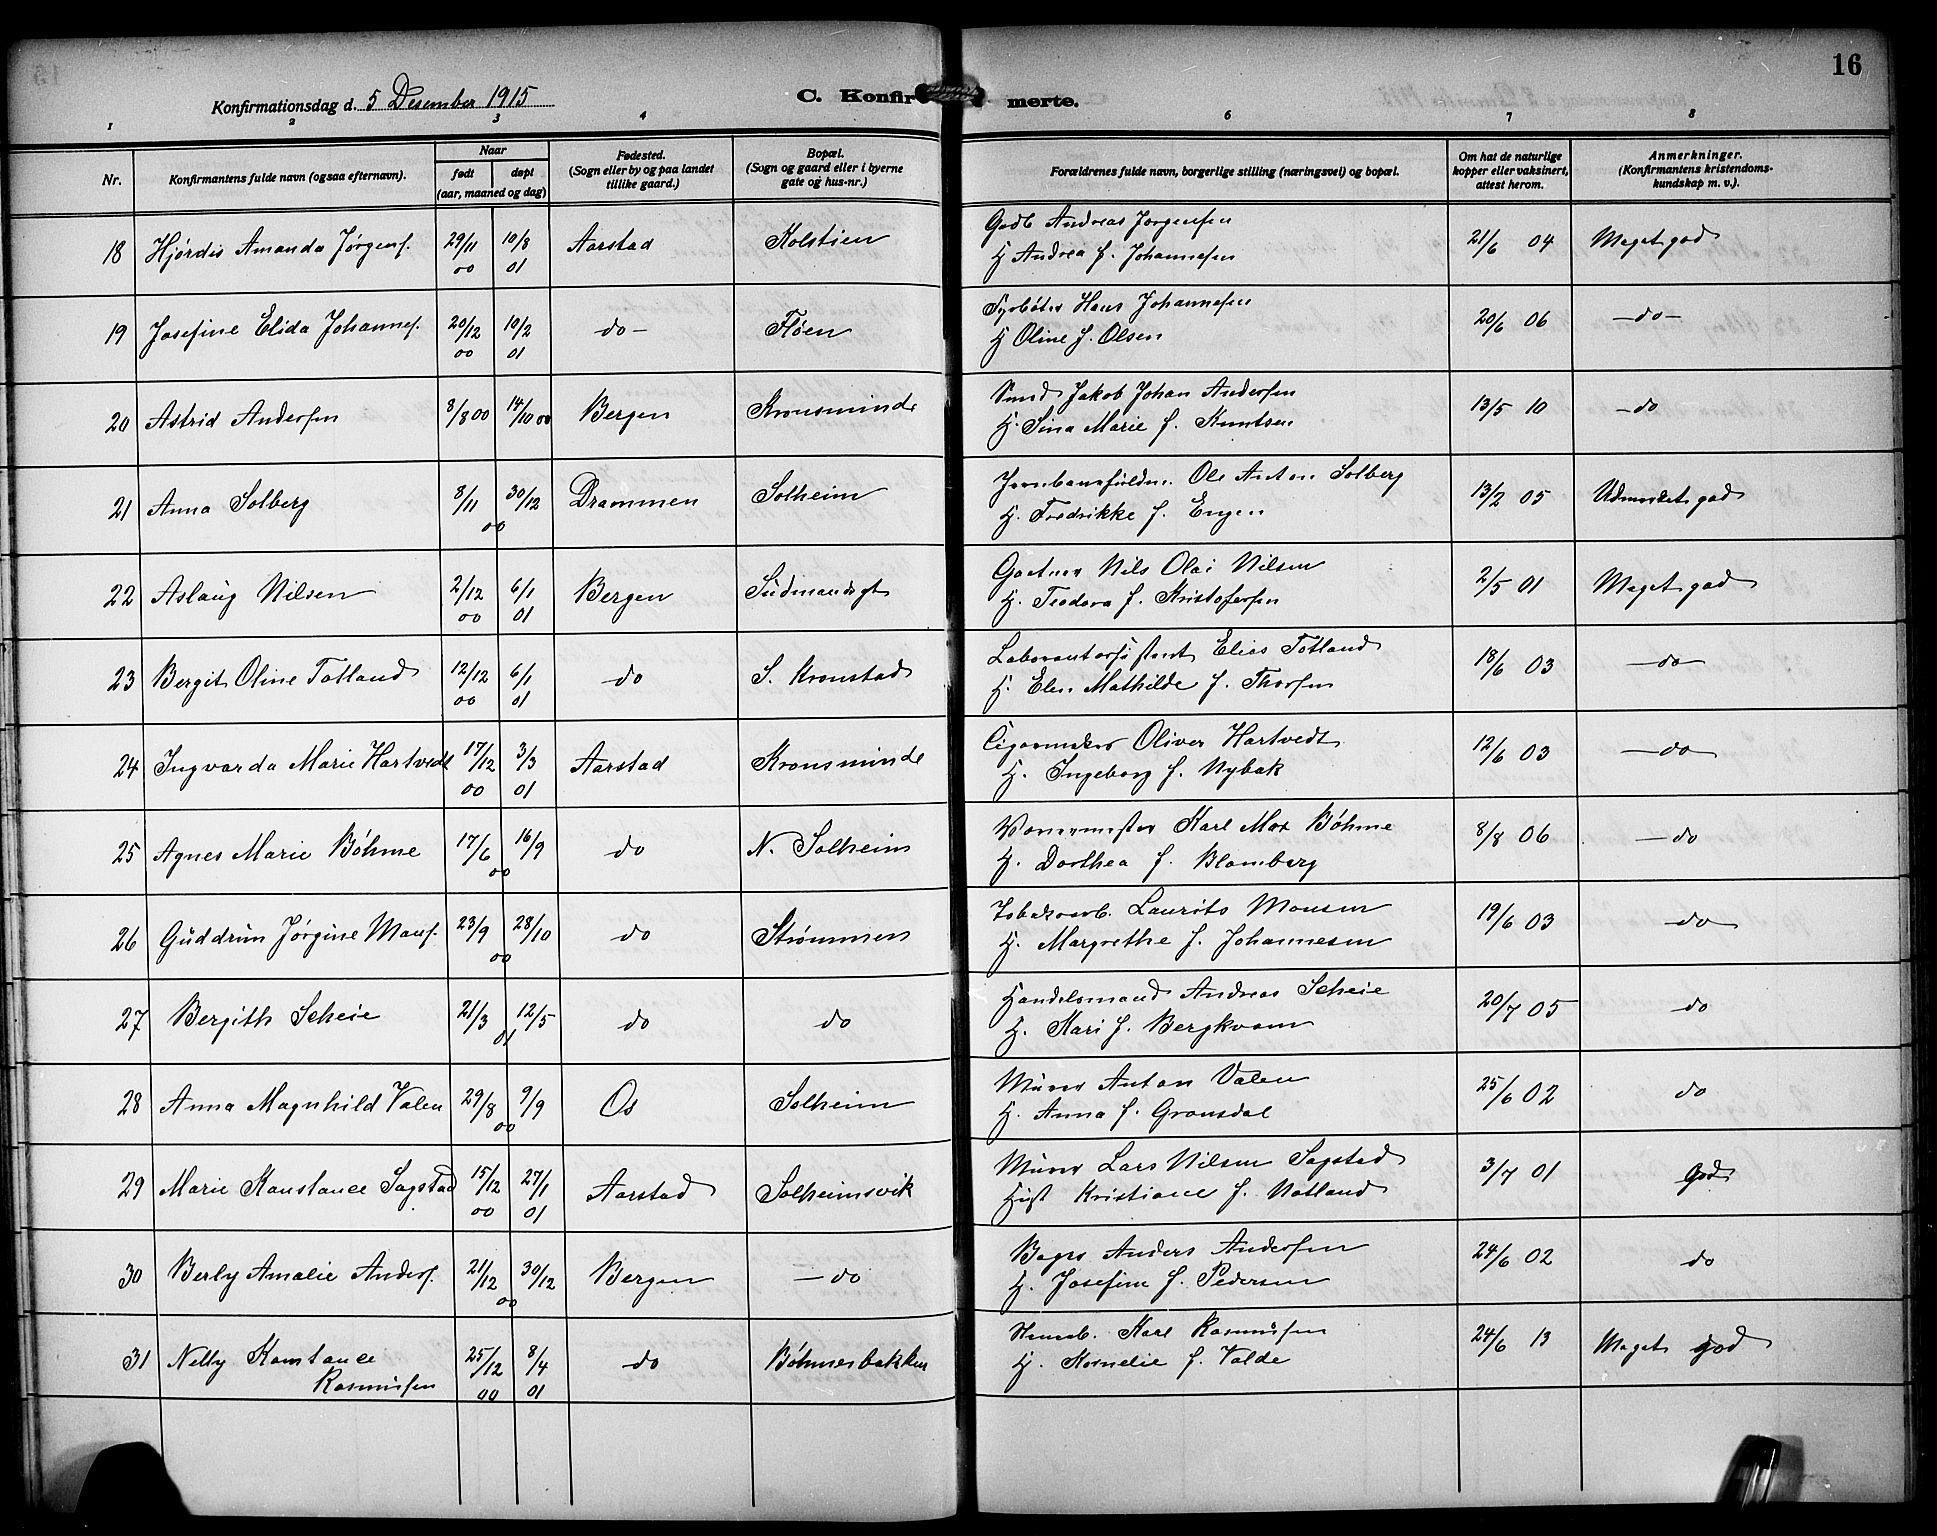 16
Konfirmationsdag d. 5 Desember 1915
C. Konfirmerte.
1 2 3 4 6 7 8
Nr.
Konfirmantens fulde navn (ogsaa efternavn).
Naar
født døpt
(aar, maaned og dag)
Fødested.
(Sogn eller by og paa landet
tillike gaard.)
Bopæl.
(Sogn og gaard eller i byerne
gate og hus-nr.)
Forældrenes fulde navn, borgerlige stilling (næringsvei) og bopæl.
Om hat de naturlige
kopper eller vaksinert,
attest herom.
Anmerkninger.
(Konfirmantens kristendoms-
kundskap m. v.).
18 Hjørdis Amanda Jørgens. 29/11 00 10/8 01 Aarstad Kolstien
Andreas Jørgensen
H Andrea f. Johannesen
21/6 04 Meget god
19 Josefine Elida Johannes. 20/12 00 10/2 01 do - Fløen
Fyrbøter Hans Johannesen
H Oline f. Olsen
20/6 06 -do-
20 Astrid Andersen 8/8 00 14/10 00 Bergen Kronsminde
Smed Jakob Johan Andersen
H. Sina Marie f. Knutsen
13/5 10 -do
21 Anna Solberg 8/11 30/12 00 Drammen Solheim
Ole Anton Solberg
H. Fredrikke f. Engen
13/2 05 Udmerket god
22 Aslaug Nilsen 2/12 00 6/1 01 Bergen Sudmandsgt
Gartner Nils Olai Nilsen
H. Teodora f. Kristofersen
2/5 01 Meget god
23 Bergit Oline Totland 12/12 00 6/1 01 do S. Kronstad
Elias Totland
H. Elen Mathilde f. Thorsen
18/6 03 -do-
24 Ingvarda Marie Hartvedt 17/12 00 3/3 01 Aarstad Kronsminde
Cigarmaker Oliver Hartvedt
H. Ingeborg f. Nybak
12/6 03 -do
25 Agnes Marie Böhme 17/6 16/9 00 do N. Solheim
Karl Max Böhme
H. Dorthea f. Blomberg
8/8 06 -do
26 Guddrun Jørgine Mons. 23/9 28/10 00 do Strømmen
Tobaksarb. Laurits Monsen
H. Margrethe f. Johannesen
19/6 03 do
27 Bergith Scheie 21/3 12/5 01 do do
Handelsmand Andreas Scheie
H. Mari f. Bergkvam
20/7 05 do
28 Anna Magnhild Valen 29/8 9/9 00 Os Solheim
Murer Anton Valen
H. Anna f. Gronsdal
25/6 02 do
29 Marie Konstance Sagstad 15/12 00 27/1 01 Aarstad Solheimsvik
Murer Lars Nilsen Sagstad
Hust Kristiane f. Natland
3/7 01 God
30 Berly Amalie Anders. 21/12 30/12 00 Bergen - do
Anders Andersen
H. Josefine f. Pedersen
24/6 02 do
31 Nelly Konstance
Rasmusen 25/12 00 8/4 01 do Bøhmerbakken
Karl Rasmusen
H. Kornelie f. Valde
24/6 13 Meget god